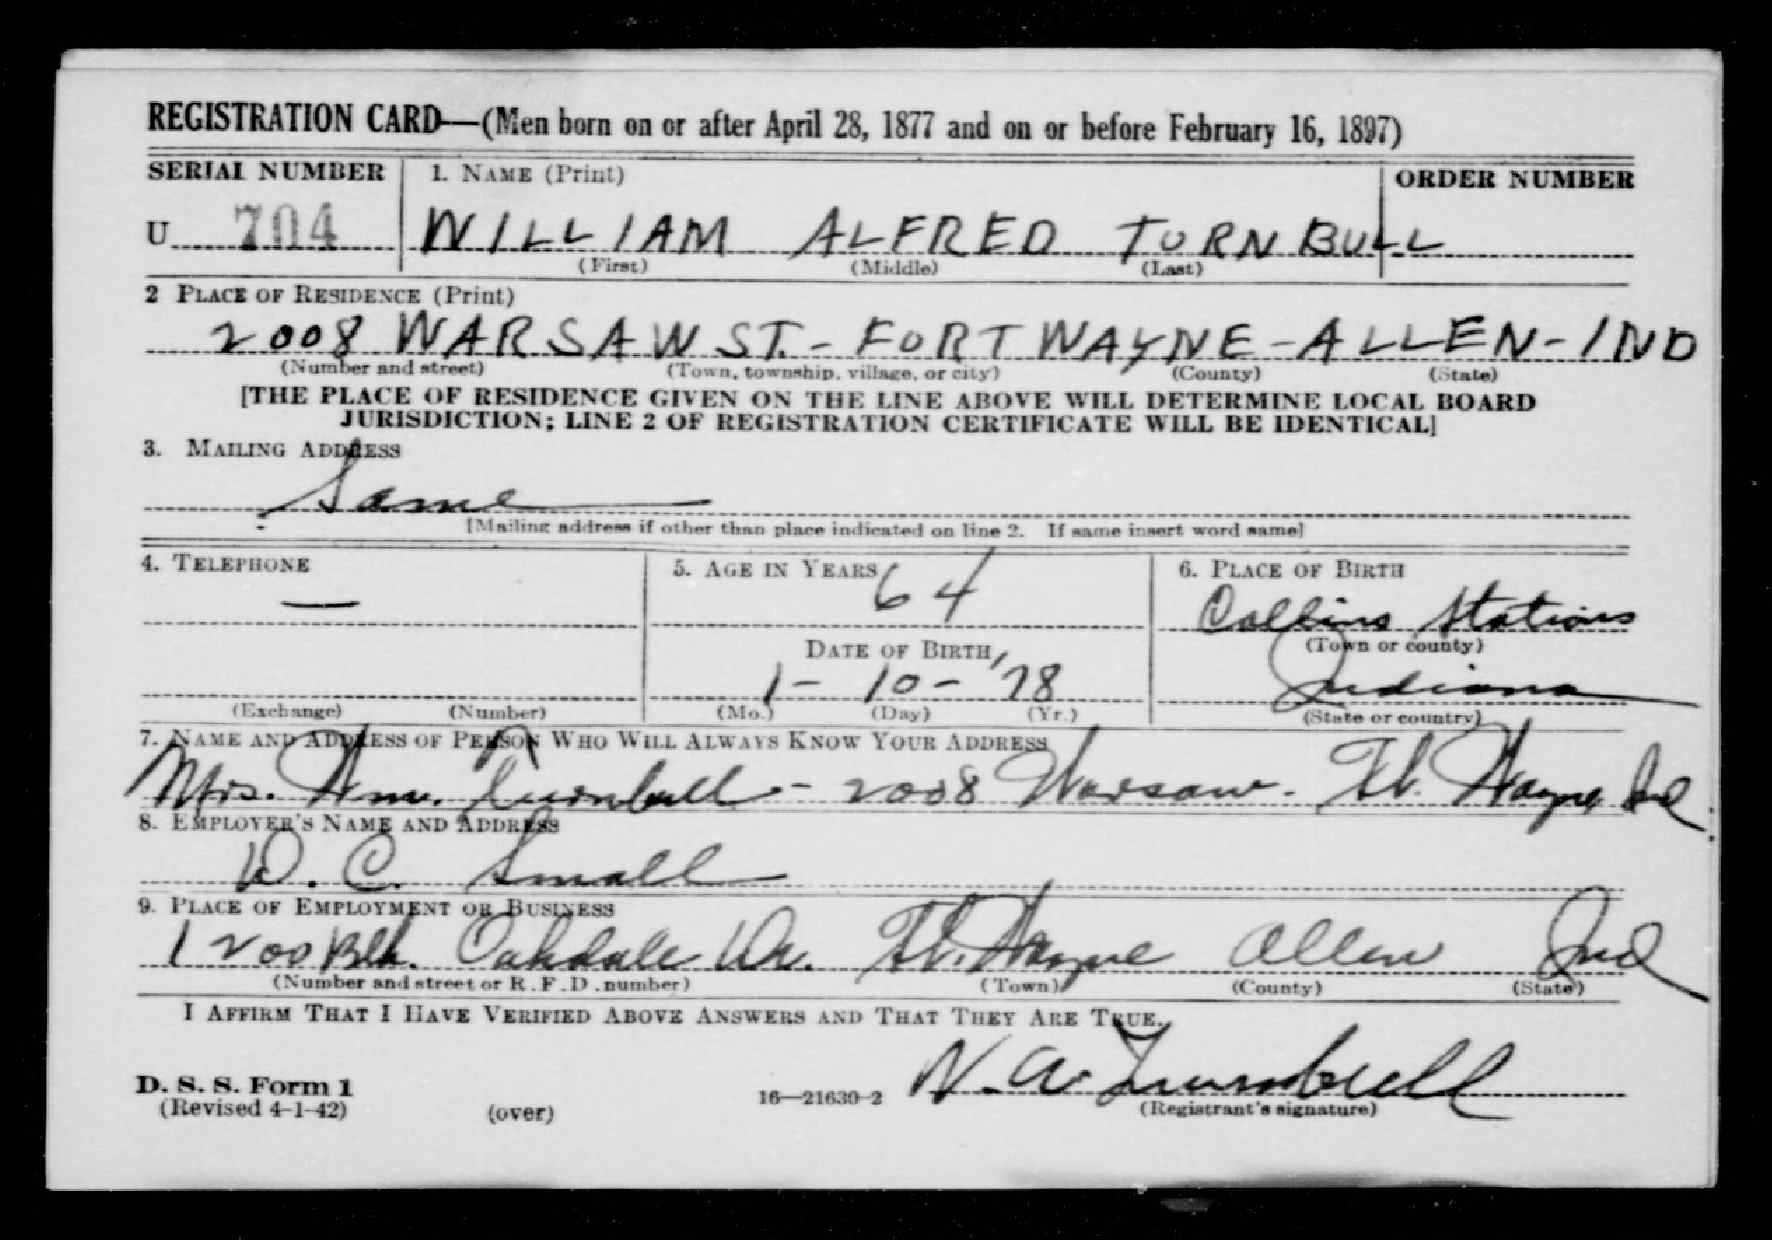 REGISTRATION CARD—(Men born on or after April 28, 1877 and on or before February 16, 1897)
SERIAL NUMBER 1. NAME (Print) ORDER NUMBER
U 704 WILLIAM ALFRED TURNBULL
(First) (Middle) (Last)
2 PLACE OF RESIDENCE (Print)
2008 WARSAW ST. - FORT WAYNE - ALLEN - IND
(Number and street) (Town, township, village, or city) (County) (State)
[THE PLACE OF RESIDENCE GIVEN ON THE LINE ABOVE WILL DETERMINE LOCAL BOARD
JURISDICTION; LINE 2 OF REGISTRATION CERTIFICATE WILL BE IDENTICAL]
3. MAILING ADDRESS
Same
[Mailing address if other than place indicated on line 2. If same insert word same]
4. TELEPHONE 5. AGE IN YEARS 6. PLACE OF BIRTH
— 64 Collins Station
(Town or county)
DATE OF BIRTH
1 - 10 - '78 Indiana
(Exchange) (Number) (Mo.) (Day) (Yr.) (State or country)
7. NAME AND ADDRESS OF PERSON WHO WILL ALWAYS KNOW YOUR ADDRESS
Mrs. Wm. Turnbull - 2008 Warsaw - Ft. Wayne Ind.
8. EMPLOYER'S NAME AND ADDRESS
W. C. Small
9. PLACE OF EMPLOYMENT OR BUSINESS
1200 Blk. Oakdale Dr. Ft. Wayne Allen Ind
(Number and street or R. F. D. number) (Town) (County) (State)
I AFFIRM THAT I HAVE VERIFIED ABOVE ANSWERS AND THAT THEY ARE TRUE.
W. A. Turnbull
D. S. S. Form 1
(Revised 4-1-42) (over) 16—21630-2 (Registrant's signature)